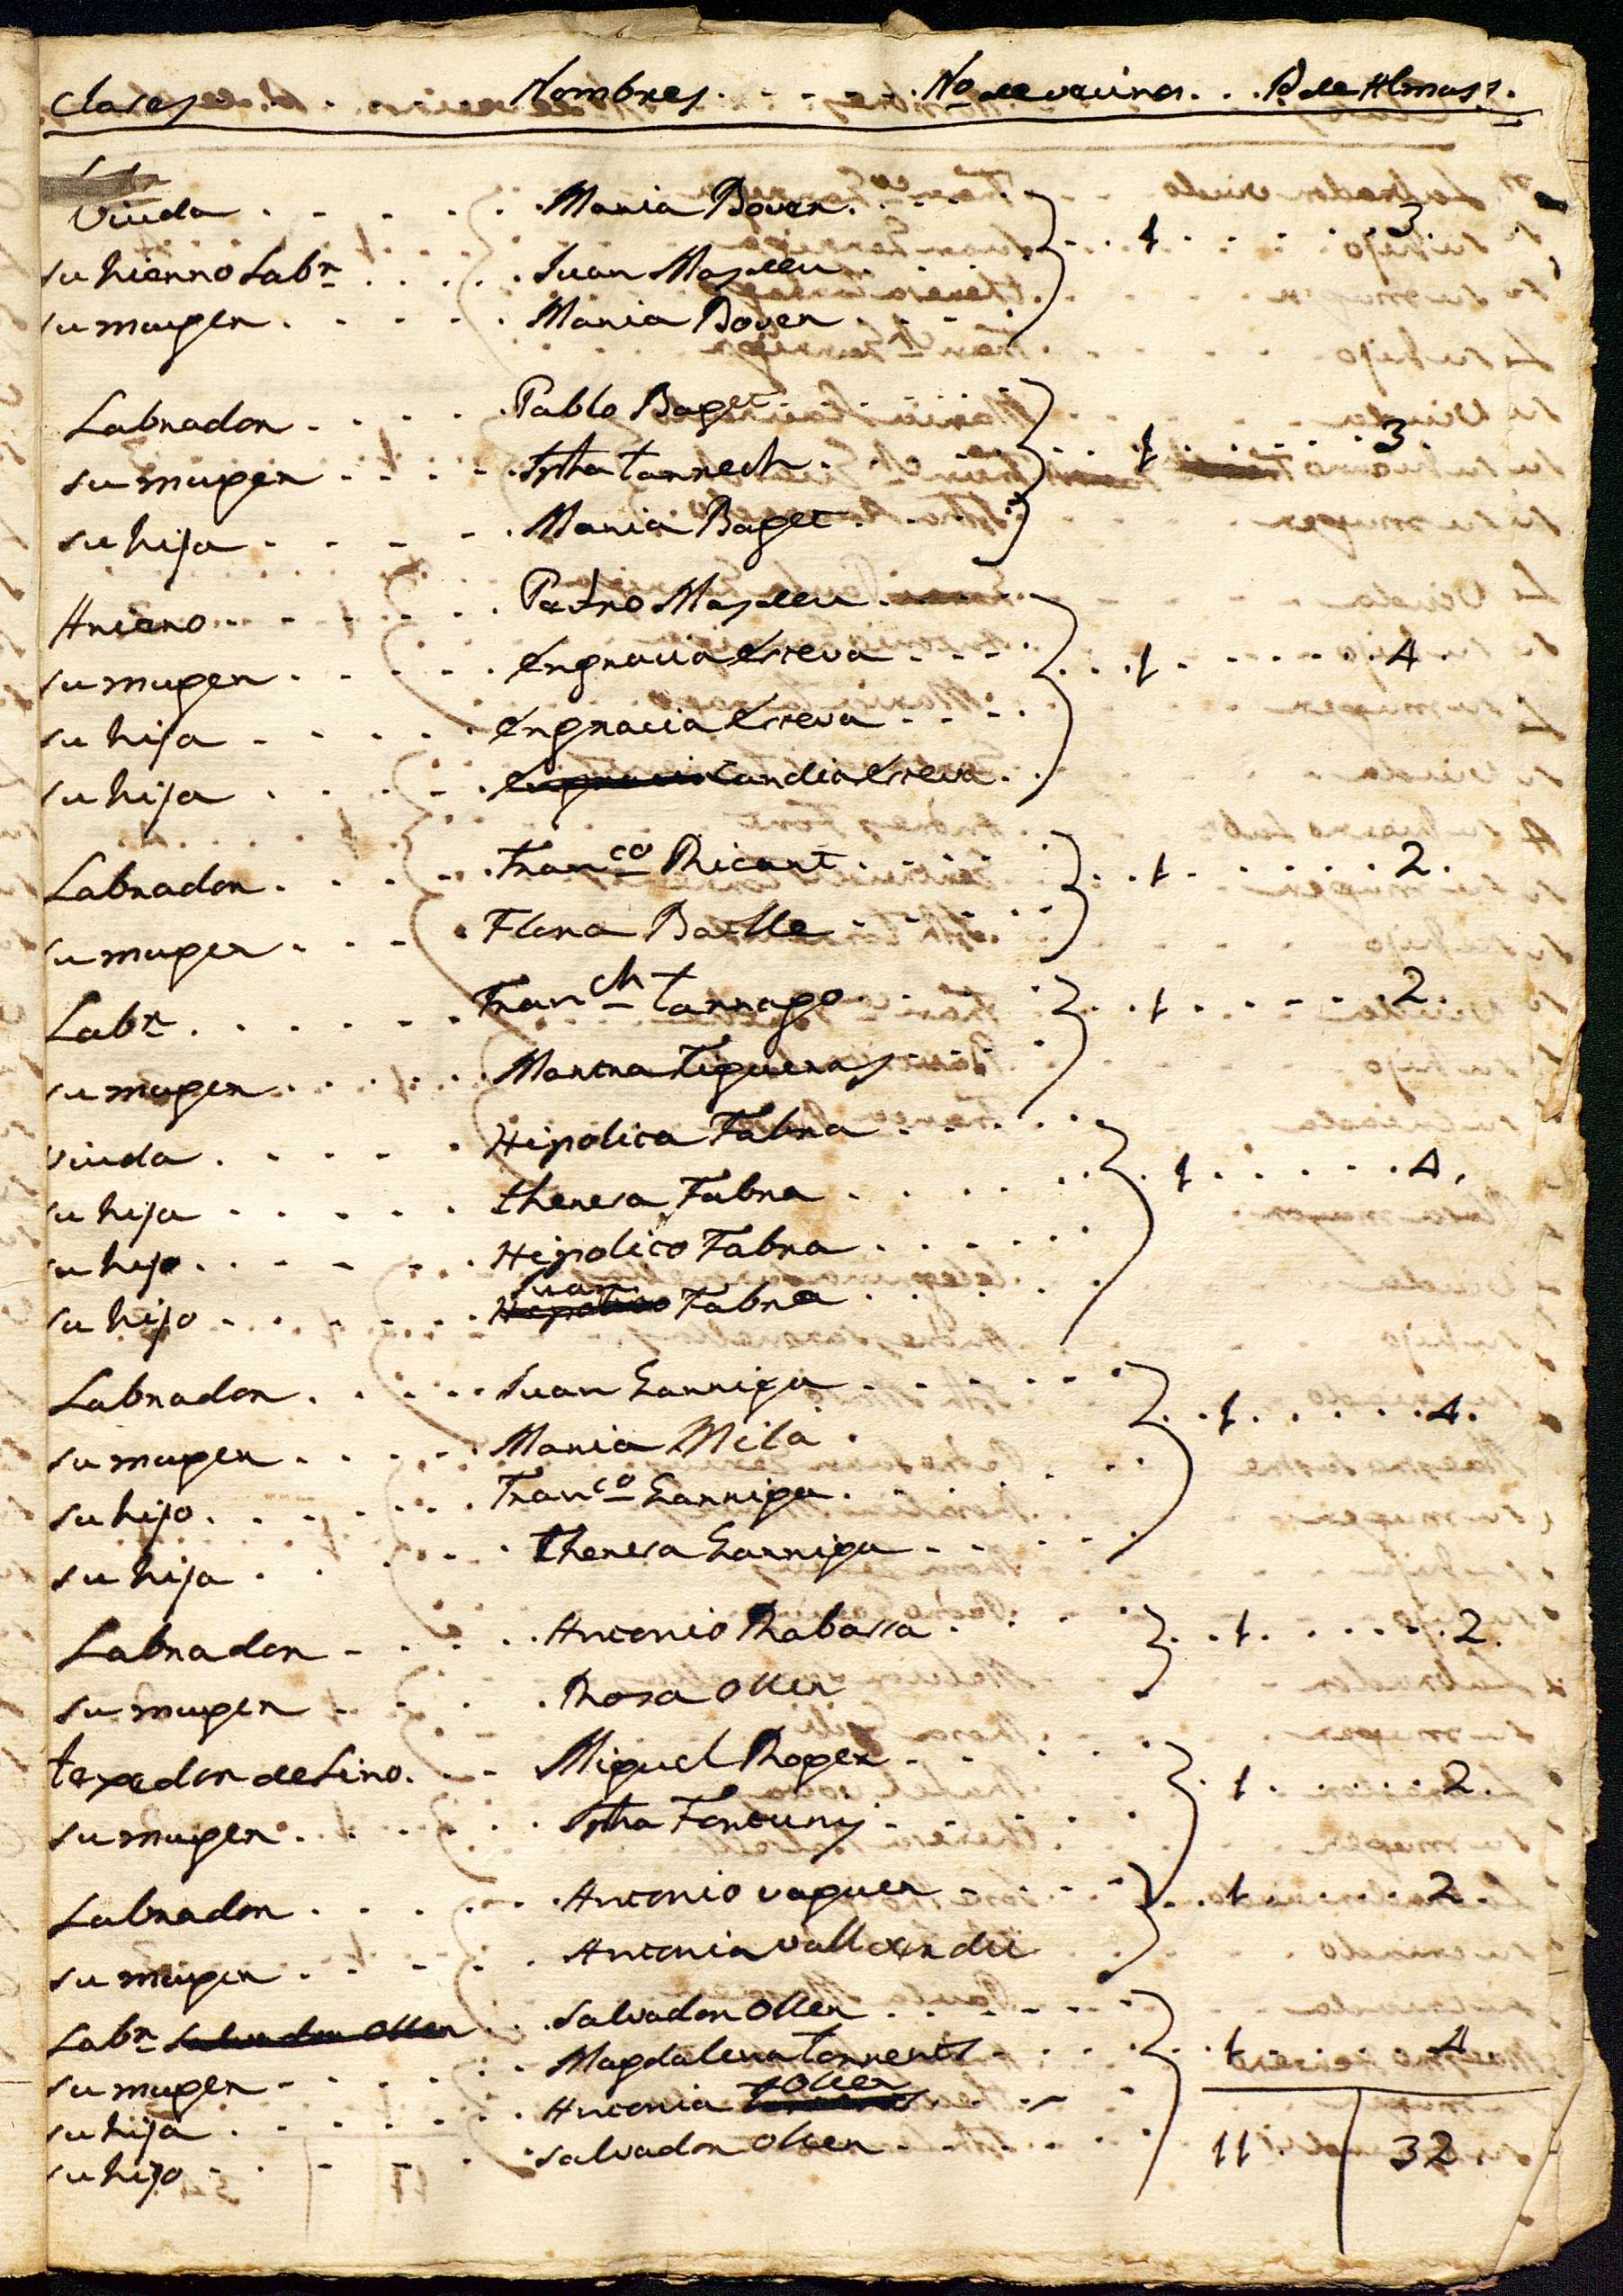 Clases . . . . . Nombres . . . . . No de vecinos . . N de Almas
Viuda . . . . . Maria Bover . . . . 1 . . . . . 3
su hierno Labr . . . . . Juan Masdeu . . . .
su muger . . . . . Maria Bover . . . .
Labrador . . . . Pablo Baget . . . .
su muger . . . . Istha Tarrech . . . . 1 . . . . . 3.
su hija . . . . . Maria Baget . . . .
Pedro Masdeu . . . .
su muger . . . . . Engracia Esteva . . . . 1 . . . . . 4.
su hija . . . . . Engracia Esteva . . . .
su hija . . . . . Candia Esteva . .
Labrador . . . . . Franco Ricart . . . . 1 . . . . . 2.
su muger . . . . Flora Batlle . . . .
Labr . . . . . . Franch Tarrago . . . . 1 . . . . . 2.
su muger . . . . . Marina Figueras . . . .
viuda . . . . . Hipolita Fabra . . . .
su hija . . . . . theresa Fabra . . . . 1 . . . . . 4.
su hijo . . . . . Hipolito Fabra . . . .
su hijo . . . . . Juan Fabra . . . .
Labrador . . . . . Juan Garriga . . . . 1 . . . . . 4.
su muger . . . . . Maria Mila .
su hijo . . . . . Franco Garriga . . .
su hija . . . . . theresa Garriga . . . .
Labrador . . . . . Antonio Rabassa . . . . 1 . . . . . 2.
su muger . . . . . Rosa Oller
texedor de Lino . . . Miguel Roger . . . . 1 . . . . . 2.
su muger . . . . . Istha Fortuny . . . .
Labrador . . . . . Antonio vaguer . . . . 1 . . . . . 2.
su muger . . . . . Antonia Vallverdu
Labr Salvador Oller . . Salvador Oller . . . .
su muger . . . . . Magdalena Torrents . . . . 1 . . . . . 4
su hija . . . . . Antonia Oller . . . .
su hijo . . . . . Salvador Oller . . . . 11 . 32